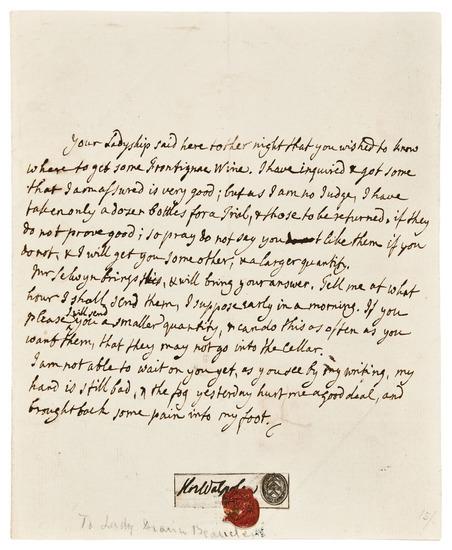 Your Ladyship said here tother night that you wished to know
where to get some Frontignac Wine. I have inquired & got some
that I am assured is very good; but as I am no Judge, I have
taken only a dozen bottles for a Trial, & those to be returned, if they
do not prove good; so pray do not say you like them if you
do not, & I will get you some other, & a larger quantity.
Mr Selwyn brings this, & will bring your answer. Tell me at what
hour I shall send them, I suppose early in a morning. If you
please I will send you a smaller quantity, & can do this as often as you
want them, that they may not go into the Cellar.
I am not able to wait on you yet, as you see by my writing, my
hand is still bad, & the fog yesterday hurt me a good deal, and
brought back some pain into my foot.
Hor Walpole
To Lady Diana Beauclerk